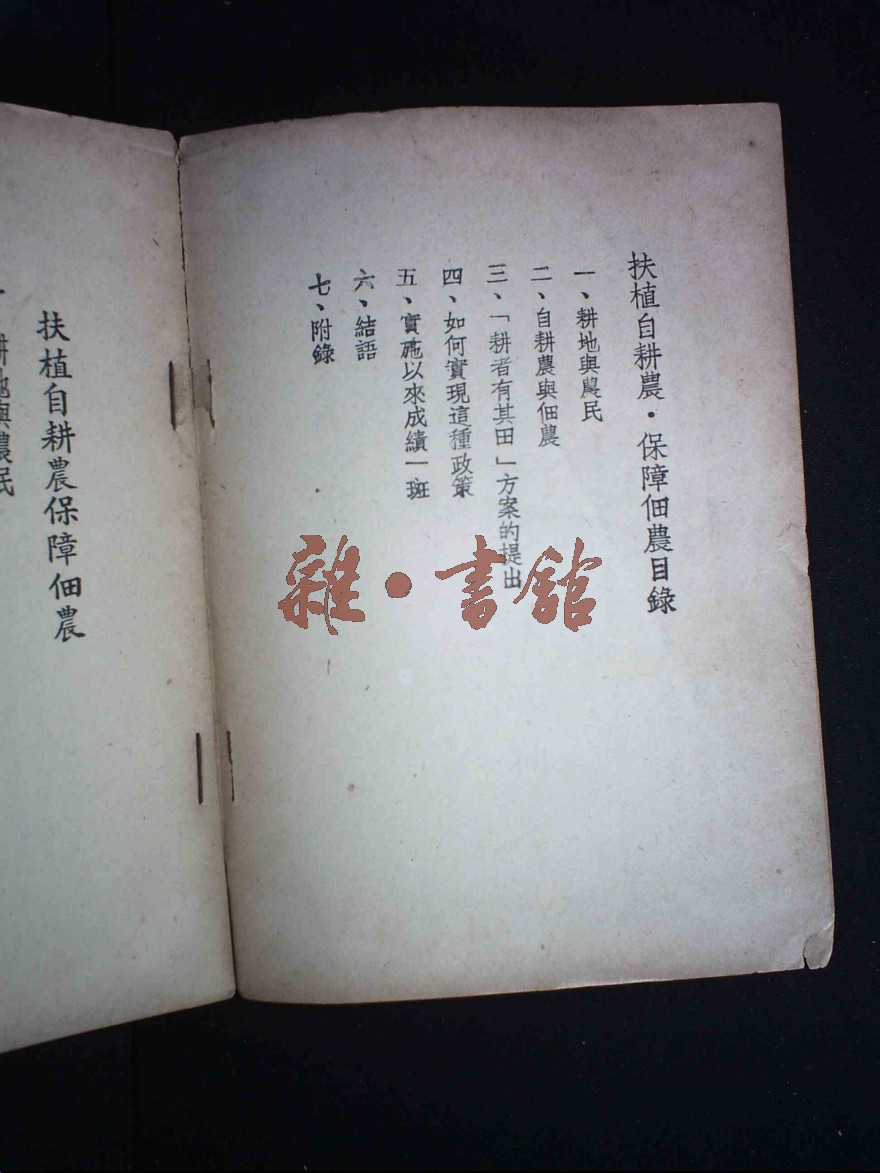 扶植自耕農·保障佃農目錄
一、耕地與農民
二、自耕農與佃農
三、「耕者有其田」方案的提出
四、如何實現這種政策
五、實施以來成績一斑
六、結語
七、附錄
扶植自耕農保障佃農
耕地與農民
雜·書館